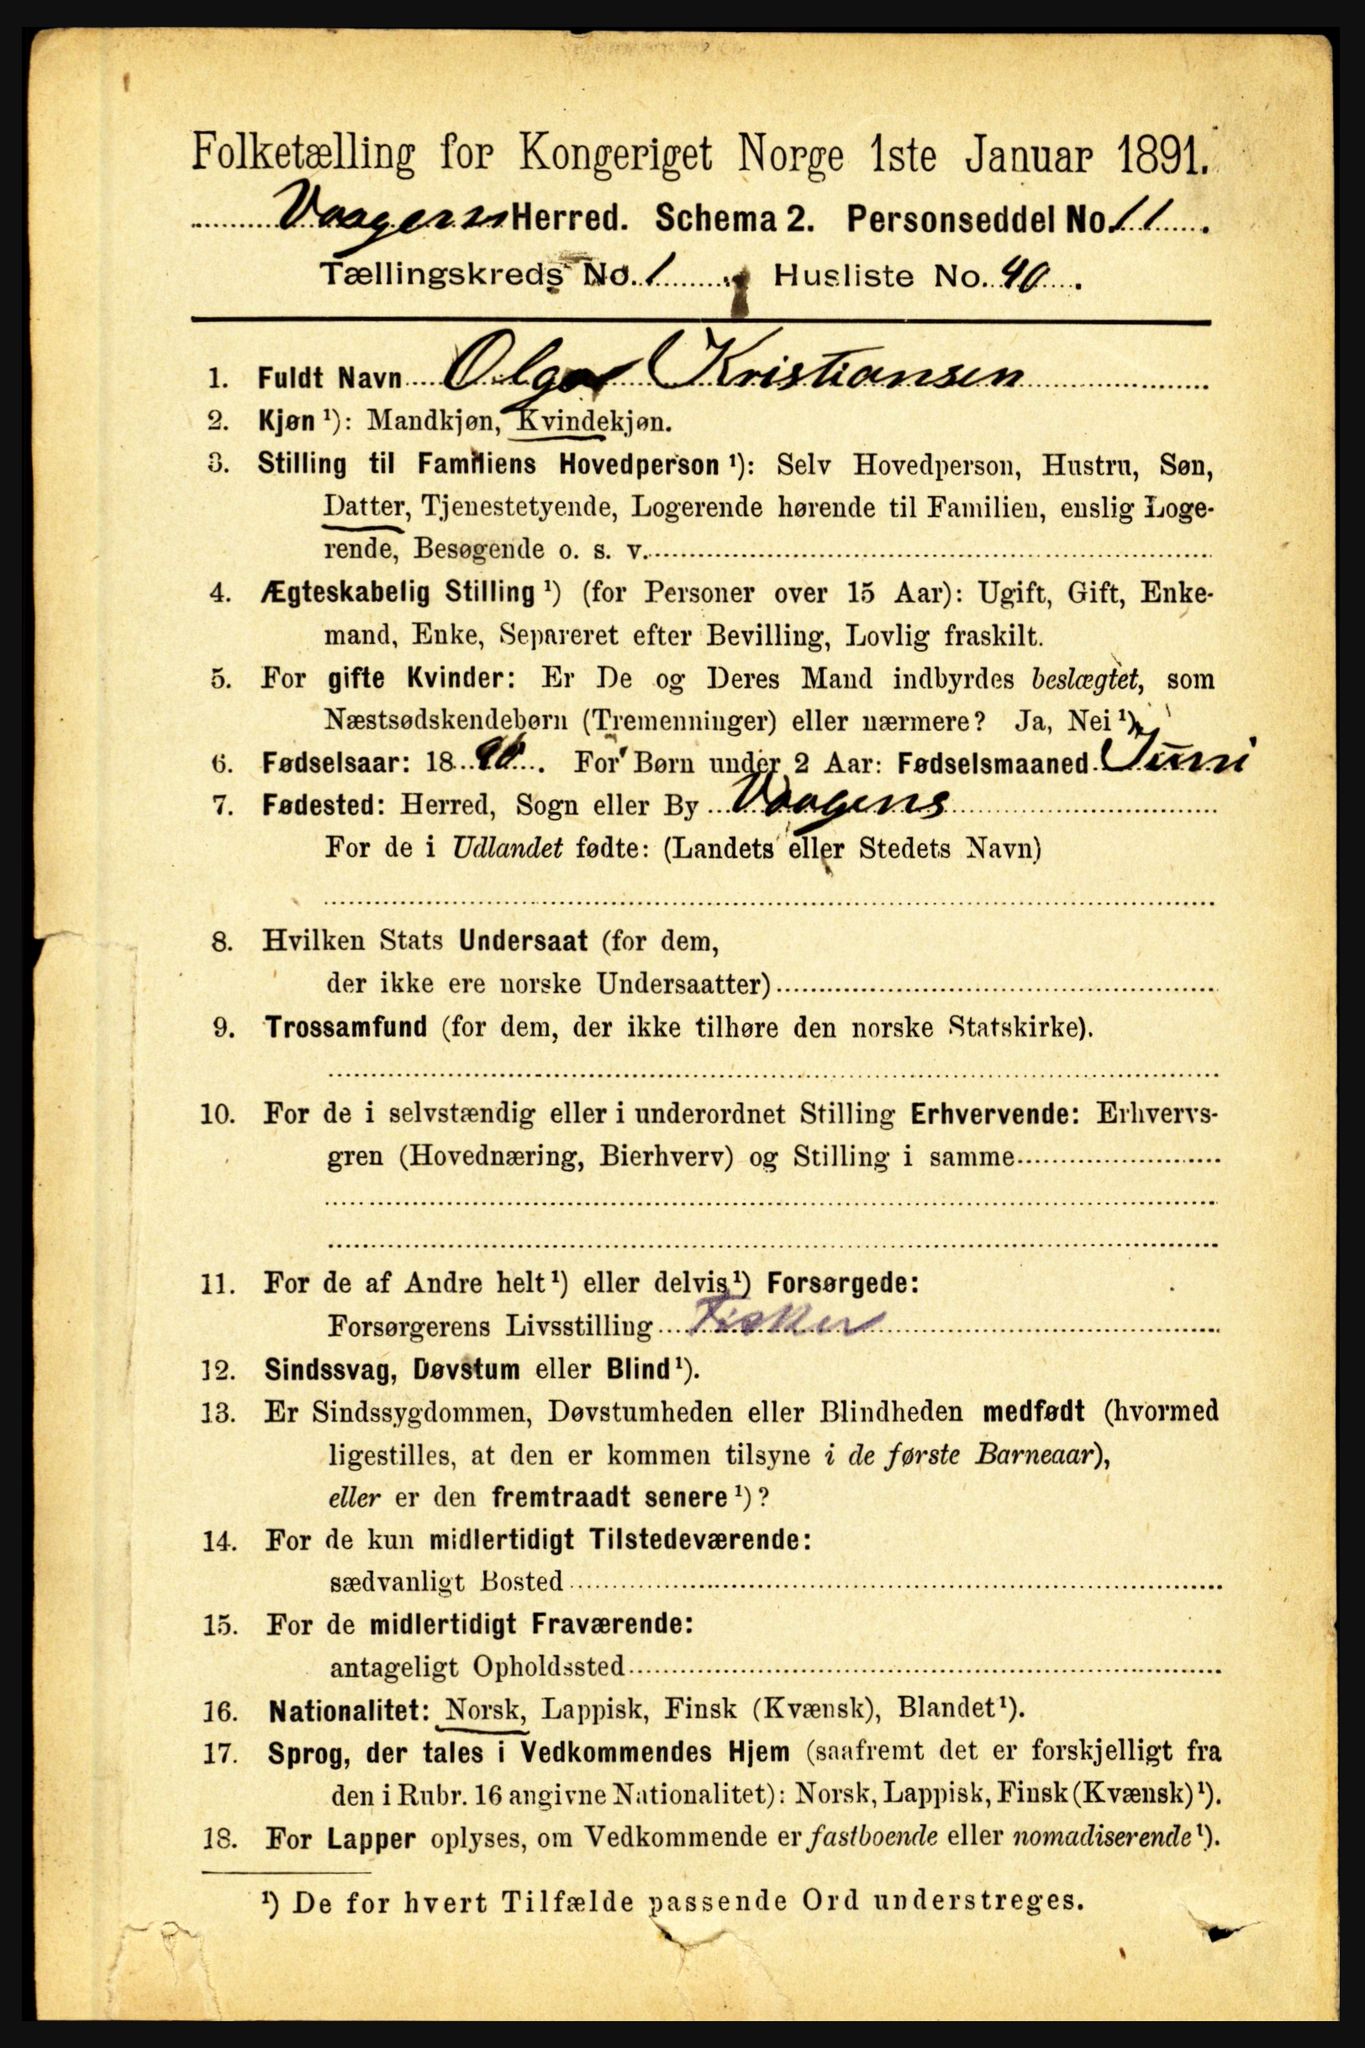 Folketælling for Kongeriget Norge 1ste Januar 1891.
Vaagens Herred. Schema 2. Personseddel No. 11.
Tællingskreds No. 1. Husliste No. 40.
1. Fuldt Navn Olga Kristiansen
2. Kjøn ¹): Mandkjøn, Kvindekjøn.
3. Stilling til Familiens Hovedperson ¹): Selv Hovedperson, Hustru, Søn,
Datter, Tjenestetyende, Logerende hørende til Familien, enslig Loge-
rende, Besøgende o. s. v.
4. Ægteskabelig Stilling ¹) (for Personer over 15 Aar): Ugift, Gift, Enke-
mand, Enke, Separeret efter Bevilling, Lovlig fraskilt.
5. For gifte Kvinder: Er De og Deres Mand indbyrdes beslægtet, som
Næstsødskendebørn (Tremenninger) eller nærmere? Ja, Nei ¹).
6. Fødselsaar: 1890. For Børn under 2 Aar: Fødselsmaaned Juni
7. Fødested: Herred, Sogn eller By Vaagens
For de i Udlandet fødte: (Landets eller Stedets Navn)
8. Hvilken Stats Undersaat (for dem,
der ikke ere norske Undersaatter)
9. Trossamfund (for dem, der ikke tilhøre den norske Statskirke).
10. For de i selvstændig eller i underordnet Stilling Erhvervende: Erhvervs-
gren (Hovednæring, Bierhverv) og Stilling i samme
11. For de af Andre helt ¹) eller delvis ¹) Forsørgede:
Forsørgerens Livsstilling Fisker
12. Sindssvag, Døvstum eller Blind ¹).
13. Er Sindssygdommen, Døvstumheden eller Blindheden medfødt (hvormed
ligestilles, at den er kommen tilsyne i de første Barneaar),
eller er den fremtraadt senere ¹)?
14. For de kun midlertidigt Tilstedeværende:
sædvanligt Bosted
15. For de midlertidigt Fraværende:
antageligt Opholdssted
16. Nationalitet: Norsk, Lappisk, Finsk (Kvænsk), Blandet ¹).
17. Sprog, der tales i Vedkommendes Hjem (saafremt det er forskjelligt fra
den i Rubr. 16 angivne Nationalitet): Norsk, Lappisk, Finsk (Kvænsk) ¹).
18. For Lapper oplyses, om Vedkommende er fastboende eller nomadiserende ¹).
¹) De for hvert Tilfælde passende Ord understreges.